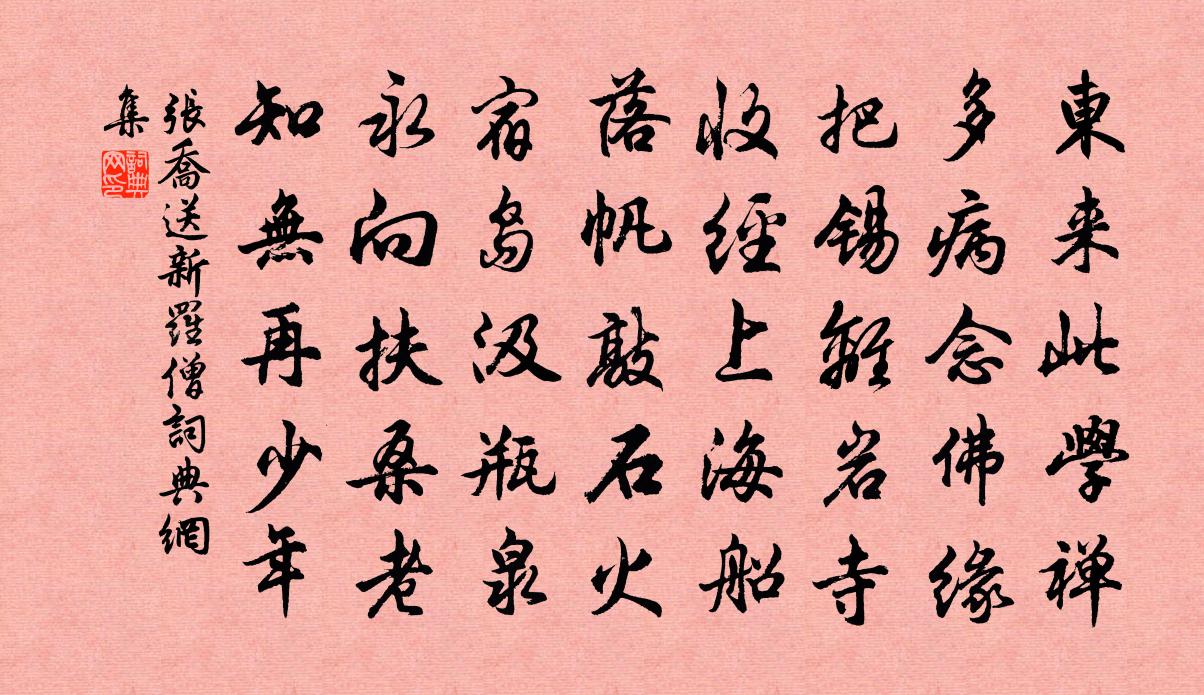 東来此學禅
多病念佛緣
把錫離岩寺
收經上海船
落帆敲石火
宿島汲瓶泉
永向扶桑老
知無再少年
張喬送新羅僧詞典網
集
詞典
网印